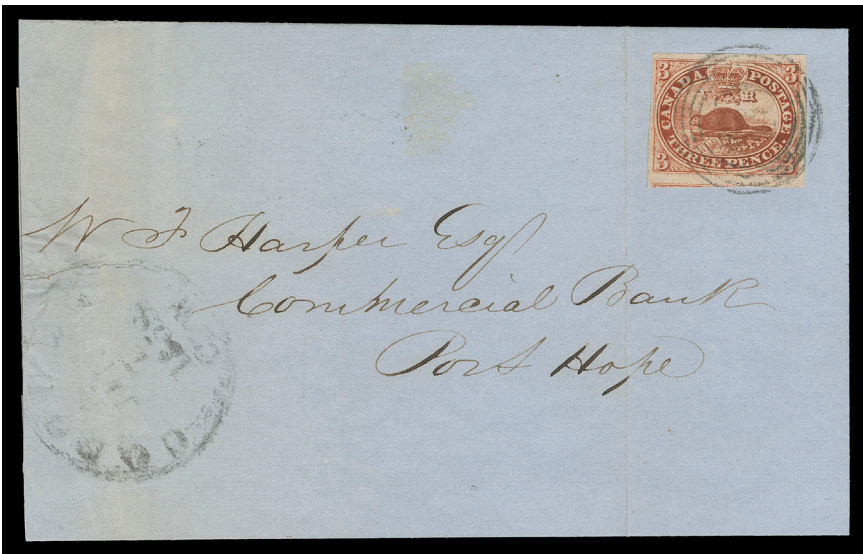 3 3
CANADA POSTAGE
V R
THREE PENCE.
3 3
W F Harper Esqr
Commercial Bank
Port Hope